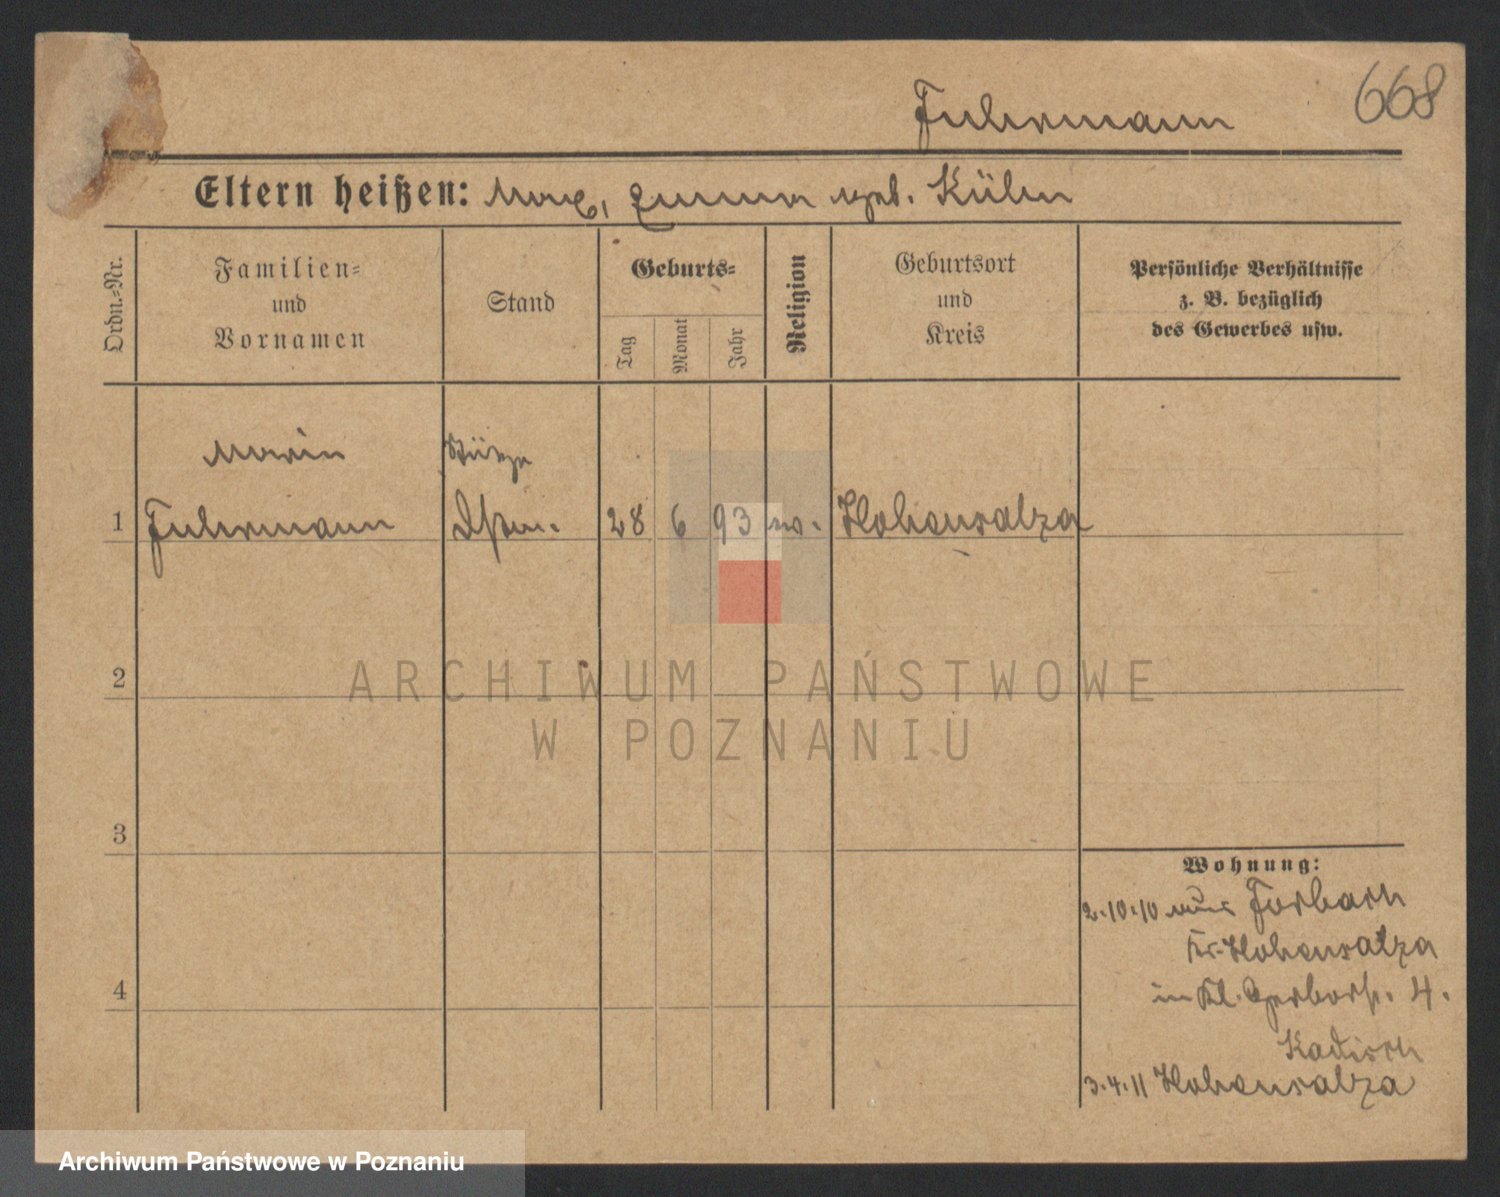 668
Fuhrmann
Eltern heißen: Max, Emma geb. Kühn
Ordn.-Nr.
Familien-
und
Vornamen
Stand
Geburts-
Tag
Monat
Jahr
Religion
Geburtsort
und
Kreis
Persönliche Verhältnisse
z. B. bezüglich
des Gewerbes usw.
Marie Stütze
1 Fuhrmann 28 6 93 Hohensalza
2
ARCHIWUM PAŃSTWOWE
W POZNANIU
3
Wohnung:
2.10.10 aus Forbach
Kr. Hohensalza
4
in Kl. Gerberstr. 4.
Kadisch
3.4.11 Hohensalza
Archiwum Państwowe w Poznaniu